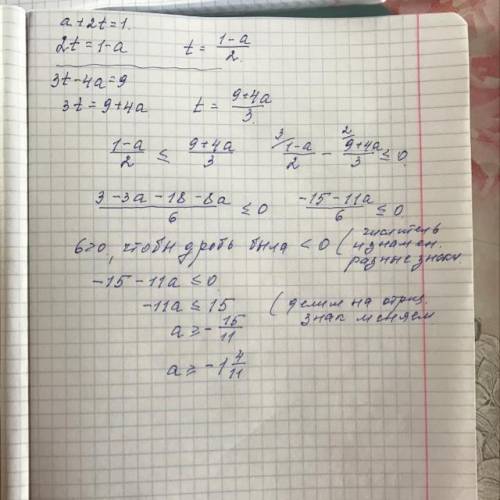 a + 2t = 1.
2t = 1-a    t = \frac{1-a}{2}.
3t - 4a = 9
3t = 9+4a    t = \frac{9+4a}{3}.
\frac{1-a}{2} ≤ \frac{9+4a}{3}    ^{3/}\frac{1-a}{2} - ^{2/}\frac{9+4a}{3} ≤ 0.
\frac{3-3a-18-8a}{6} ≤ 0    \frac{-15-11a}{6} ≤ 0.
6>0, чтобы дробь была < 0 ( числитель
и знамен.
разные знаки
-15-11a ≤ 0
-11a ≤ 15    ( делим на отриц.
знак меняем
a ≥ -\frac{15}{11}
a ≥ -1\frac{4}{11}